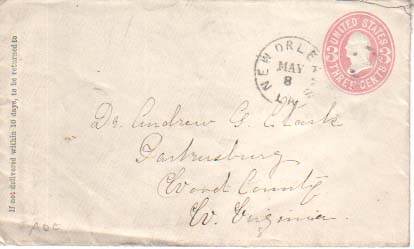 If not delivered within 10 days, to be returned to
NEW ORLEANS
MAY
8
LA.
UNITED STATES
THREE CENTS
Dr. Andrew G. Clark
Parkersburg
Wood County
W. Virginia